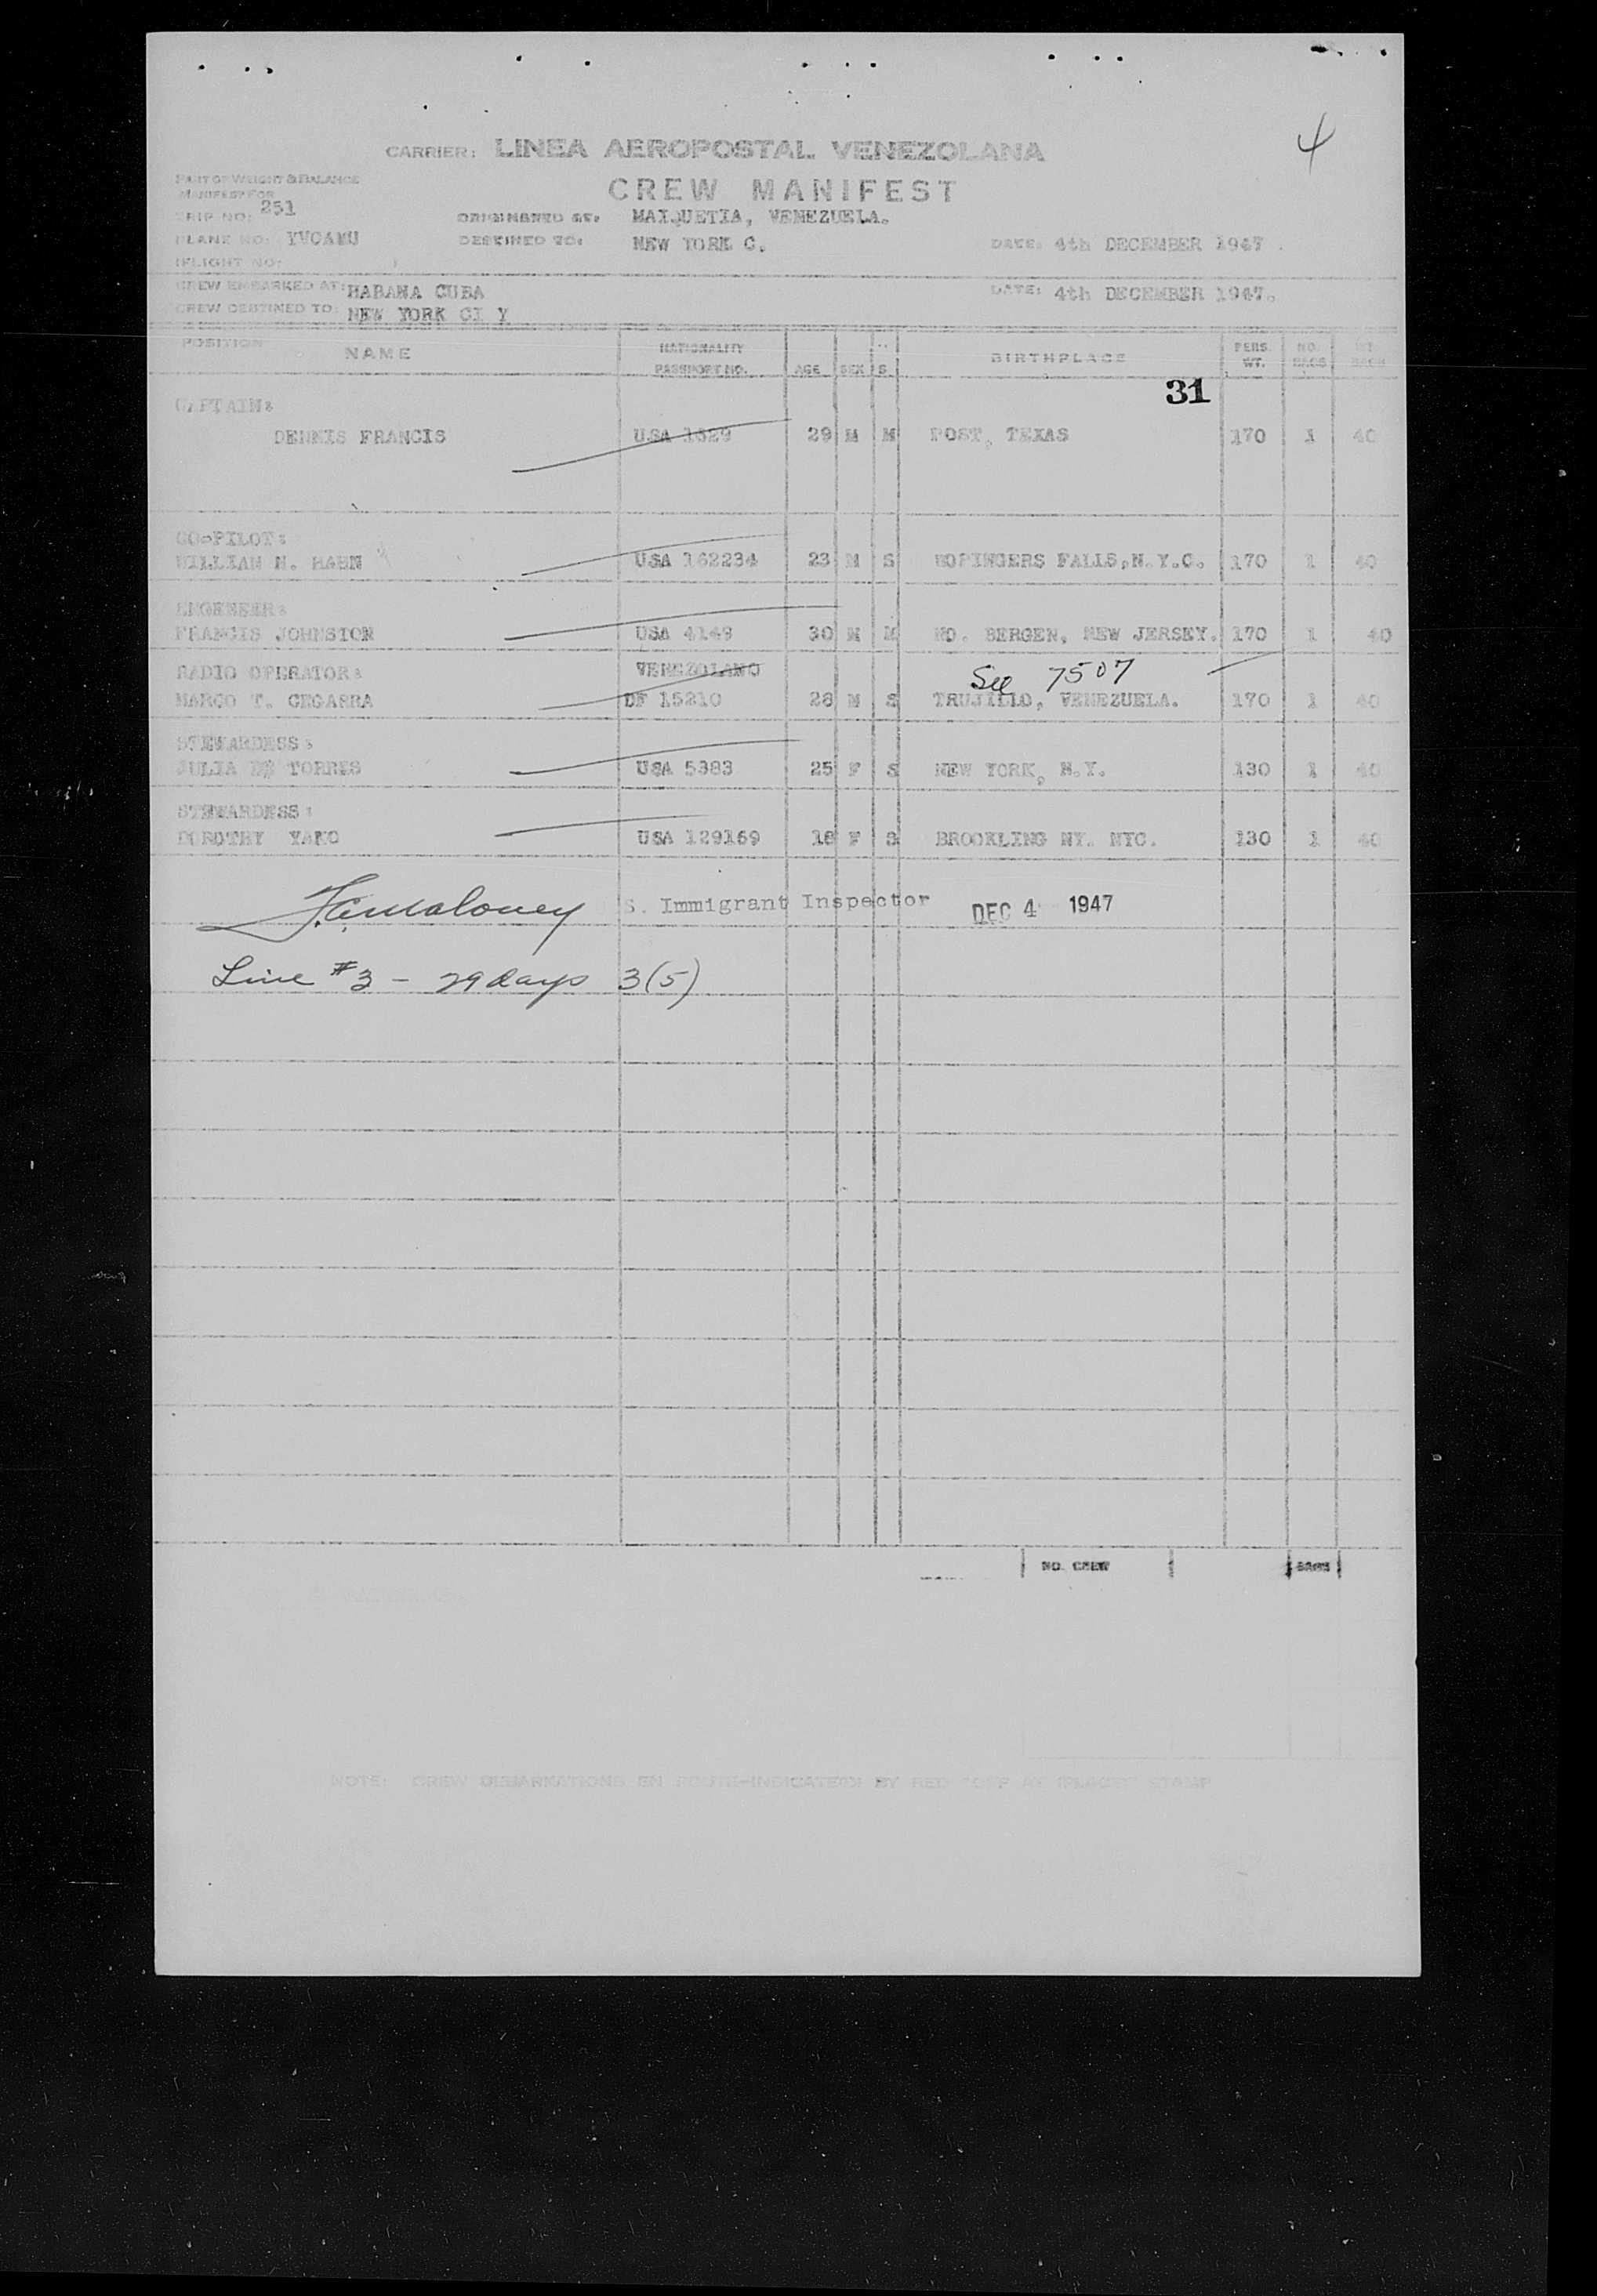 4
CARRIER: LINEA AEROPOSTAL VENEZOLANA
PART OF WEIGHT & BALANCE
MANIFEST FOR
CREW MANIFEST
TRIP NO: 251 ORIGINATED AT: MAIQUETIA, VENEZUELA.
PLANE NO: YVCAMU DESTINED TO: NEW YORK C. DATE: 4th DECEMBER 1947 .
(FLIGHT NO: )
CREW EMBARKED AT: HABANA CUBA DATE: 4th DECEMBER 1947.
CREW DESTINED TO: NEW YORK CI Y
POSITION NAME NATIONALITY PASSPORT NO. AGE SEX S. BIRTHPLACE PERS. WT. NO. BAGS WT. BAGS
31
CAPTAIN:
DENNIS FRANCIS USA 1629 29 M M POST, TEXAS 170 1 40
CO-PILOT:
WILLIAM N. HAHN USA 162234 23 M S WOPINGERS FALLS,N.Y.C. 170 1 40
ENGENEER:
FRANCIS JOHNSTON USA 4149 30 M M NO. BERGEN, NEW JERSEY. 170 1 40
RADIO OPERATOR: VENEZOLANO See 7507
MARCO T. CEGARRA DF 15210 28 M S TRUJILLO, VENEZUELA. 170 1 40
STEWARDESS:
JULIA DE TORRES USA 5383 25 F S NEW YORK, N.Y. 130 1 40
STEWARDESS:
DOROTHY YAKO USA 129169 18 F S BROOKLING NY. NYC. 130 1 40
F.C. Maloney S. Immigrant Inspector DEC 4 1947
Line #3 - 29 days 3(5)
NO. CREW BAGS
NOTE: CREW DEBARKATIONS EN ROUTE-INDICATED BY RED "OFF AT (PLACE)" STAMP